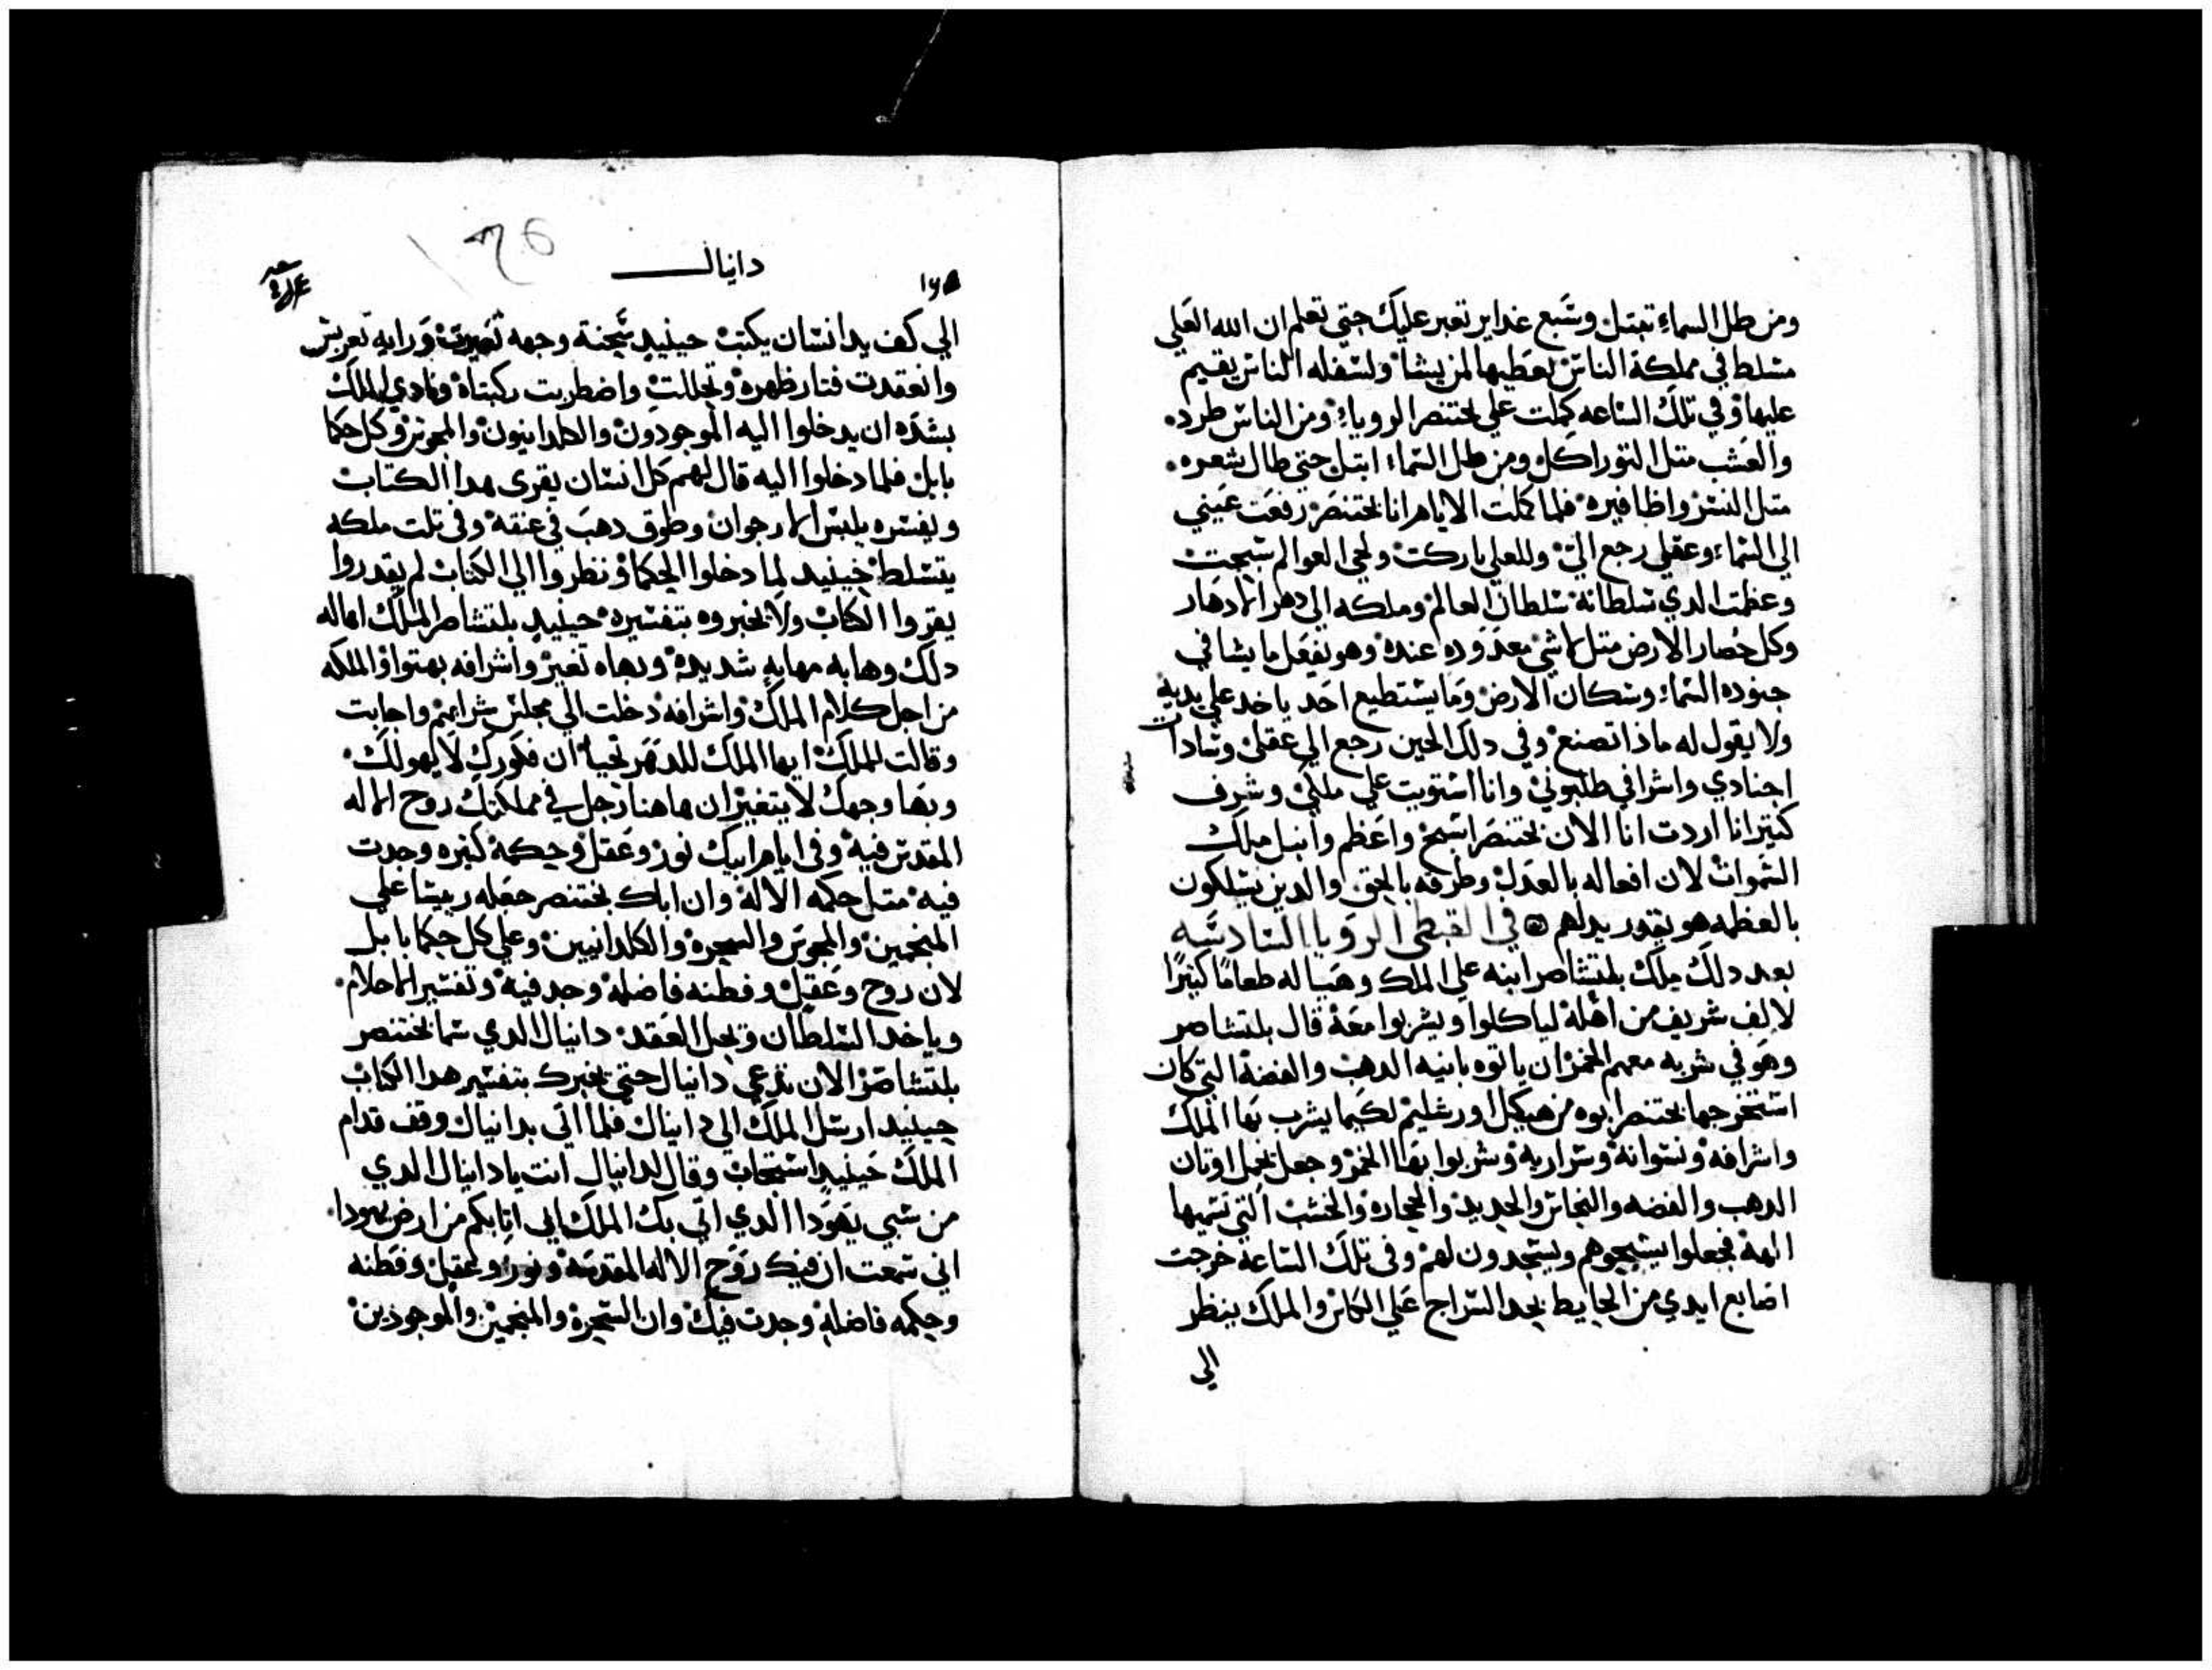 ومن طل السماء تبتل وسبع غداير تعبر عليك حتي تعلم ان الله العلي
مسلط في مملكة الناس يعطيها لمن يشا ولسفله الناس يقيم
عليها وفي تلك الساعه كملت علي بختنصر الرويا ومن الناس طرد
والعشب متل التور اكل ومن طل السماء ابتل حتي طال شعره
متل النسر واظافيره فلما كملت الايام انا بختنصر رفعت عيني
الي السماء وعقلي رجع الي وللعلي باركت ولحي العوالم سبحت
وعظمت الدي سلطانه سلطان العالم وملكه الي دهر الادهار
وكل حصار الارض متل لاشي معدوده عنده وهو يفعل ما يشا في
جنوده السماء وسكان الارض وما يستطيع احد ياخد علي يديه
ولا يقول له ماذا تصنع وفي دلك الحين رجع الي عقلي وسادات
اجنادي واشرافي طلبوني وانا استويت علي ملكي وشرف
كتير انا اردت انا الان بختنصر اسبح واعظم وانبل ملك
السموات لان افعاله بالعدل وطرقه بالحق والدين يسلكون
بالعظمه هو يقدر يدلهم في القبطي الرويا السادسه
بعد دلك ملك بلتشاصر ابنه علي الملك وهيا له طعاما كتيرا
لالف شريف من اهله لياكلوا ويشربوا معه قال بلتشاصر
وهو في شربه معهم الخمر ان ياتوه بانيه الدهب والفضه التي كان
استخرجها بختنصر ابوه من هيكل اورشليم لكيما يشرب بها الملك
واشرافه ونسوانه وسراريه وشربوا بها الخمر وجعل يجل اوتان
الدهب والفضه والنحاس والحديد والحجاره والخشب التي نسميها
الهه فجعلوا يسبحوهم ويسجدون لهم وفي تلك الساعه خرجت
اصابع ايدي من الحايط بحد السراج علي الكاس والملك ينظر
الي
دانيال
١٧٥
الي كف يد انسان يكتب حينيد سحنة وجهه تغيرت ورايه
وانعقدت فتار ظهره وتحللت واضطربت ركبتاه ونادي الملك
بشده ان يدخلوا اليه الموجودون والكلدانيون والمجوس وكل حكما
بابل فلما دخلوا اليه قال لهم كل انسان يقري هدا الكتاب
ويفسره يلبس الارجوان وطوق دهب في عنقه وفي تلت ملكه
يتسلط حينيد لما دخلوا الحكما ونظروا الي الكتاب لم يقدروا
يقروا الكتاب ولا يخبروه بتفسيره حينيد بلتشاصر الملك اهاله
دلك وهابه مهابه شديده وبهاه تغير واشرافه بهتوا والملكه
من اجل كلام الملك واشرافه دخلت الي مجلس شرابهم واجابت
وقالت للملك ايها الملك للدهر تحيا ان فكورك لا يهولك
وبها وجهك لا يتغير ان هاهنا رجل في مملكتك روح الاله
المقدس فيه وفي ايام ابيك نور وعقل وحكمه كتيره وجدت
فيه متل حكمه الاله وان اباك بختنصر جعله رييسا علي
المنجمين والمجوس والسحره والكلدانيين وعلي كل حكما بابل
لان روح وعقل وفطنه فاضله وجد فيه وتفسير الاحلام
وياخد السلطان ويحل العقد دانيال الدي سما بختنصر
بلتشاصر الان تدعي دانيال حتي يخبرك بتفسير هدا الكتاب
حينيد ارسل الملك الي دانيال فلما اتي بدانيال وقف قدام
الملك حينيد استجاب وقال لدانيال انت يا دانيال الدي
من سبي يهودا الدي اتي بك الملك ابي اتابكم من ارض يهودا
اني سمعت ان فيك روح الاله المقدسه ونور وعقل وفطنه
وحكمه فاضله وجدت فيك وان السحره والمنجمين والموجودين